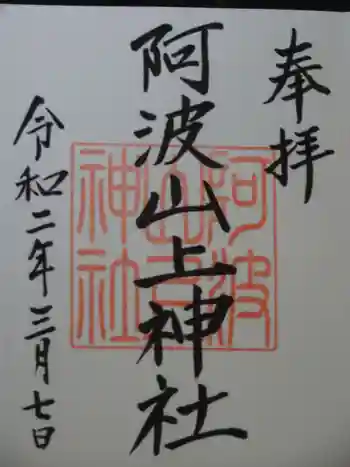 奉拝
阿波山上神社
阿波山上神社
令和二年三月七日